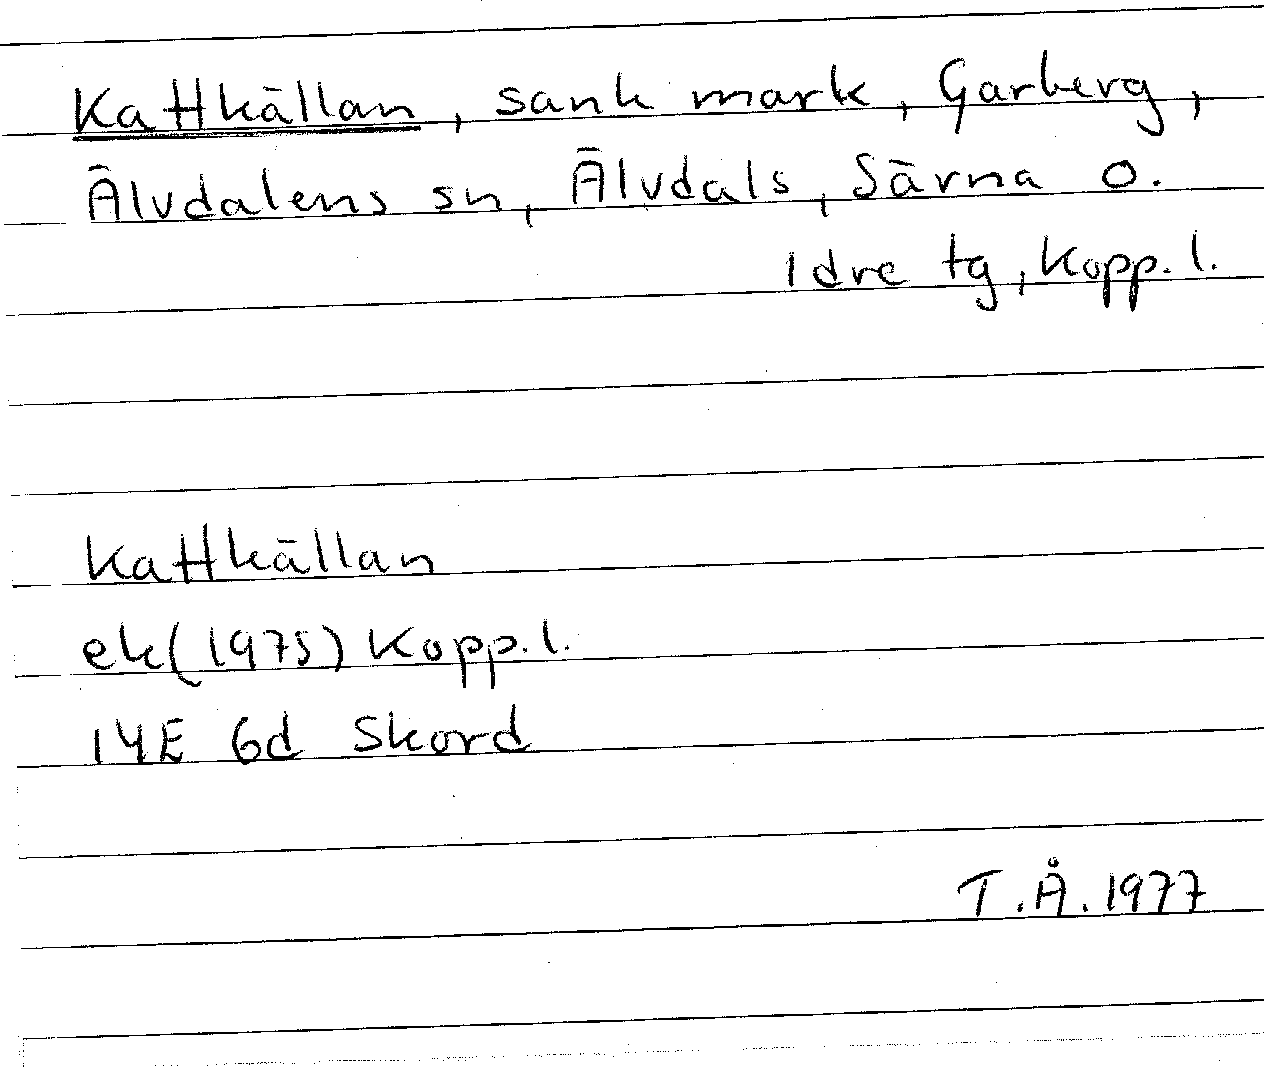 Kattkällan, sank mark, Garberg,
Älvdalens sn, Älvdals, Särna o.
Idre tg, Kopp. l.
Kattkällan
ek(1975) Kopp. l.
14E 6d Skord
T.Å. 1977